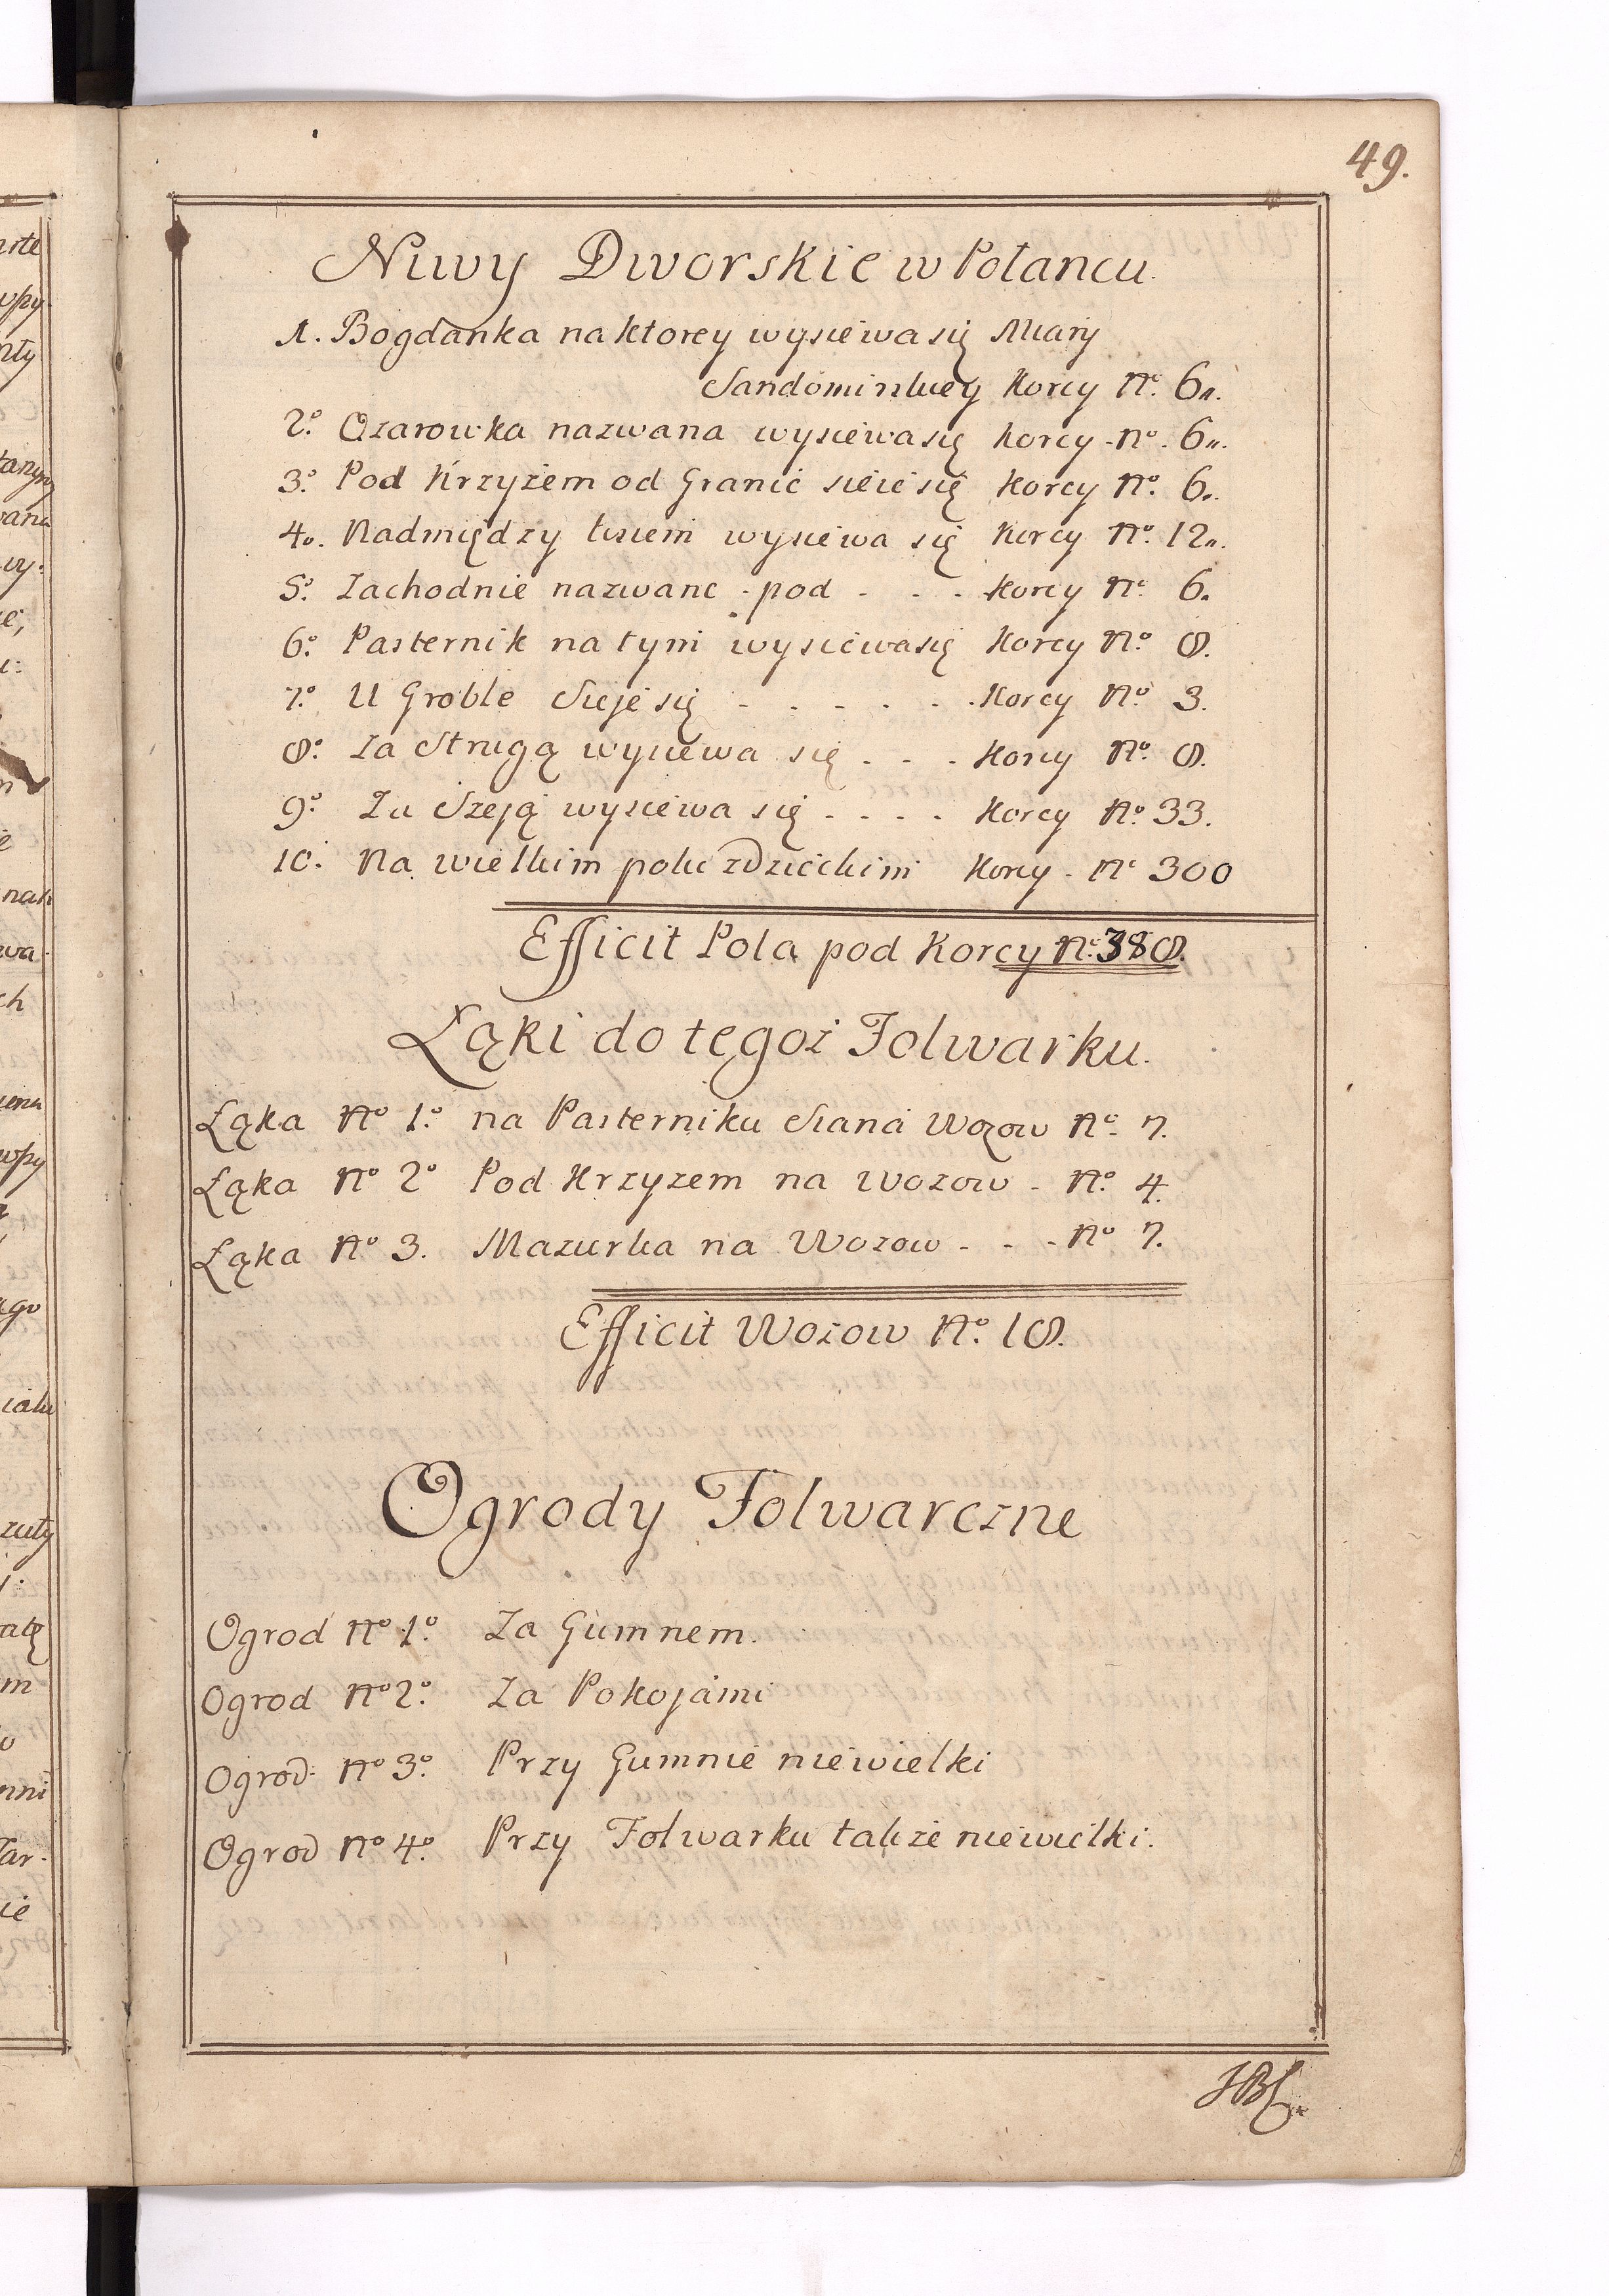 49.
Niwy Dworskie w Połancu.
1. Bogdanka na ktorey wysiewa się Miary
Sandomirskiey Korcy No. 6„.
2o. Ozarowka nazwana wysiewa się korcy - no. 6„.
3o. Pod Krzyżem od Granic sieie się Korcy No. 6.
4o. Nadmiędzy tusiem wysiewa się Korcy No. 12„.
5o. Zachodnie nazwane - pod - - - Korcy No. 6.
6o. Pasternik na tym wysiewa się Korcy No. 8.
7o. U Groble Sieje się - - - - - - Korcy No. 3.
8o. Za Strugą wysiewa się - - - Korcy No. 8.
9o. Za Szeją wysiewa się - - - - Korcy No. 33.
10. Na wielkim polu Korcy - No 300
Efficit Pola pod Korcy No. 388.
Łąki do tegoż Folwarku.
Łąka No 1o. na Pasterniku Siana Wozow No. 7.
Łąka No 2o Pod Krzyżem na Wozow - No. 4.
Łąka No 3. Mazurka na Wozow - - - No 7.
Efficit Wozow No. 18.
Ogrody Folwarczne
Ogrod No 1o. Za Gumnem.
Ogrod No 2o. Za Pokojami
Ogrod No 3o. Przy Gumnie niewielki
Ogrod No 4o. Przy Folwarku także niewielki.